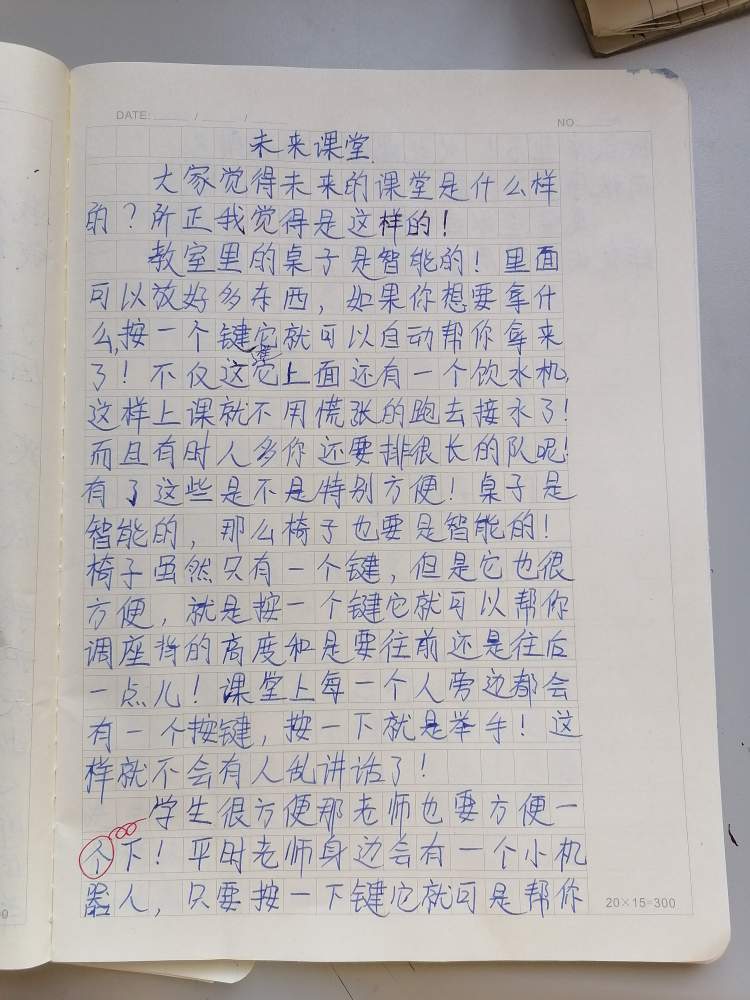 DATE: / /
NO
未来课堂
大家觉得未来的课堂是什么样
的?所正我觉得是这样的!
教室里的桌子是智能的!里面
可以放好多东西,如果你想要拿什
么,按一个键它就可以自动帮你拿来
了!不仅这它上面还有一个饮水机,
这样上课就不用慌张的跑去接水了!
而且有时人多你还要排很长的队呢!
有了这些是不是特别方便!桌子是
智能的,那么椅子也要是智能的!
椅子虽然只有一个键,但是它也很
方便,就是按一个键它就可以帮你
调座背的高度和是要往前还是往后
一点儿!课堂上每一个人旁边都会
有一个按键,按一下就是举手!这
样就不会有人乱讲话了!
学生很方便那老师也要方便一
个下!平时老师身边会有一个小机
器人,只要按一下键它就可是帮你
20×15=300